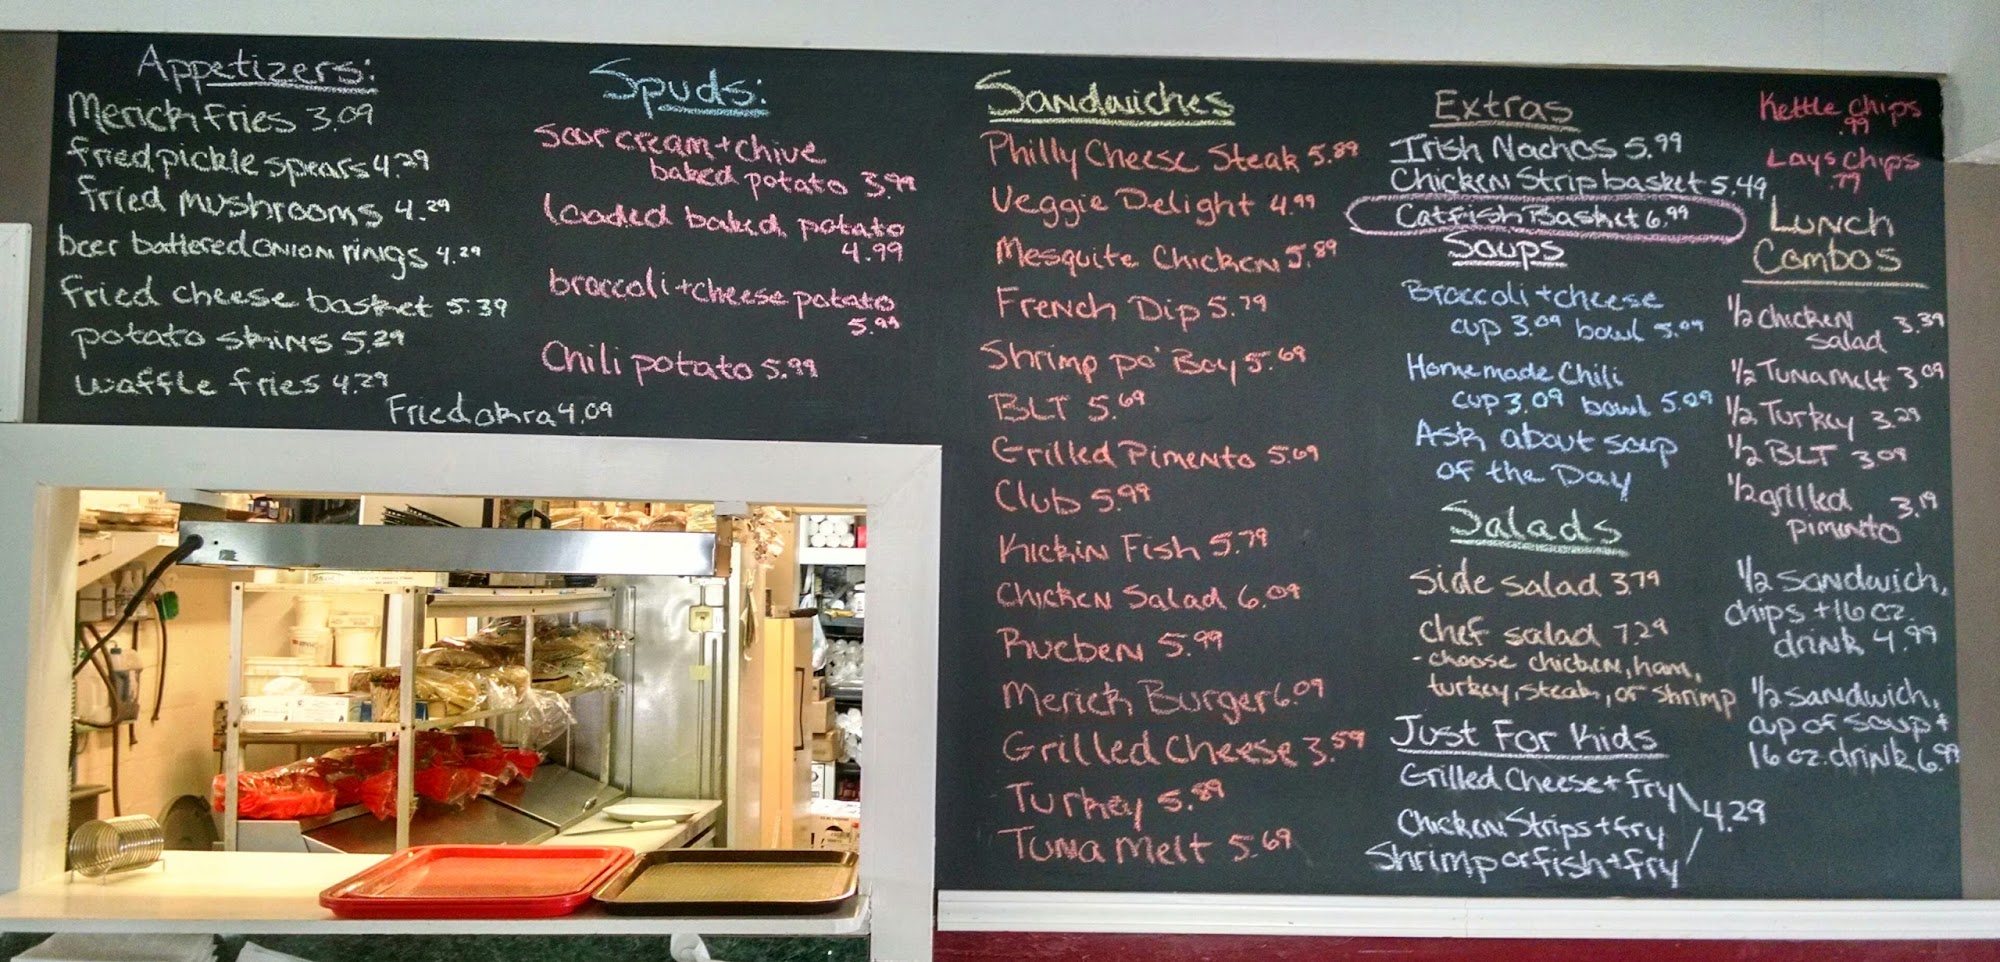 Appetizers:
Merick Fries 3.09
fried pickle spears 4.29
fried mushrooms 4.29
beer battered onion rings 4.29
fried cheese basket 5.39
potato skins 5.29
waffle fries 4.29
Fried okra 4.09
Spuds:
sour cream + chive
baked potato 3.99
loaded baked potato
4.99
broccoli + cheese potato
5.99
Chili potato 5.99
Sandwiches
Philly Cheese Steak 5.89
Veggie Delight 4.99
Mesquite Chicken 5.89
French Dip 5.79
Shrimp po' Boy 5.69
BLT 5.69
Grilled Pimento 5.69
Club 5.99
Kickin Fish 5.79
Chicken Salad 6.09
Rueben 5.99
Merick Burger 6.09
Grilled Cheese 3.59
Turkey 5.89
Tuna Melt 5.69
Extras
Irish Nachos 5.99
Chicken Strip basket 5.49
Catfish Basket 6.99
Soups
Broccoli + cheese
cup 3.09 bowl 5.09
Homemade Chili
cup 3.09 bowl 5.09
Ask about soup
of the Day
Salads
side salad 3.79
chef salad 7.29
- choose chicken, ham,
turkey, steak, or shrimp
Just For Kids
Grilled Cheese + fry
Chicken Strips + fry 4.29
Shrimp or fish + fry
Kettle chips
.99
Lays chips
.79
Lunch
Combos
1/2 chicken
salad 3.39
1/2 Tuna melt 3.09
1/2 Turkey 3.29
1/2 BLT 3.09
1/2 grilled
pimento 3.19
1/2 sandwich,
chips + 16 oz.
drink 4.99
1/2 sandwich,
cup of soup +
16 oz. drink 6.99